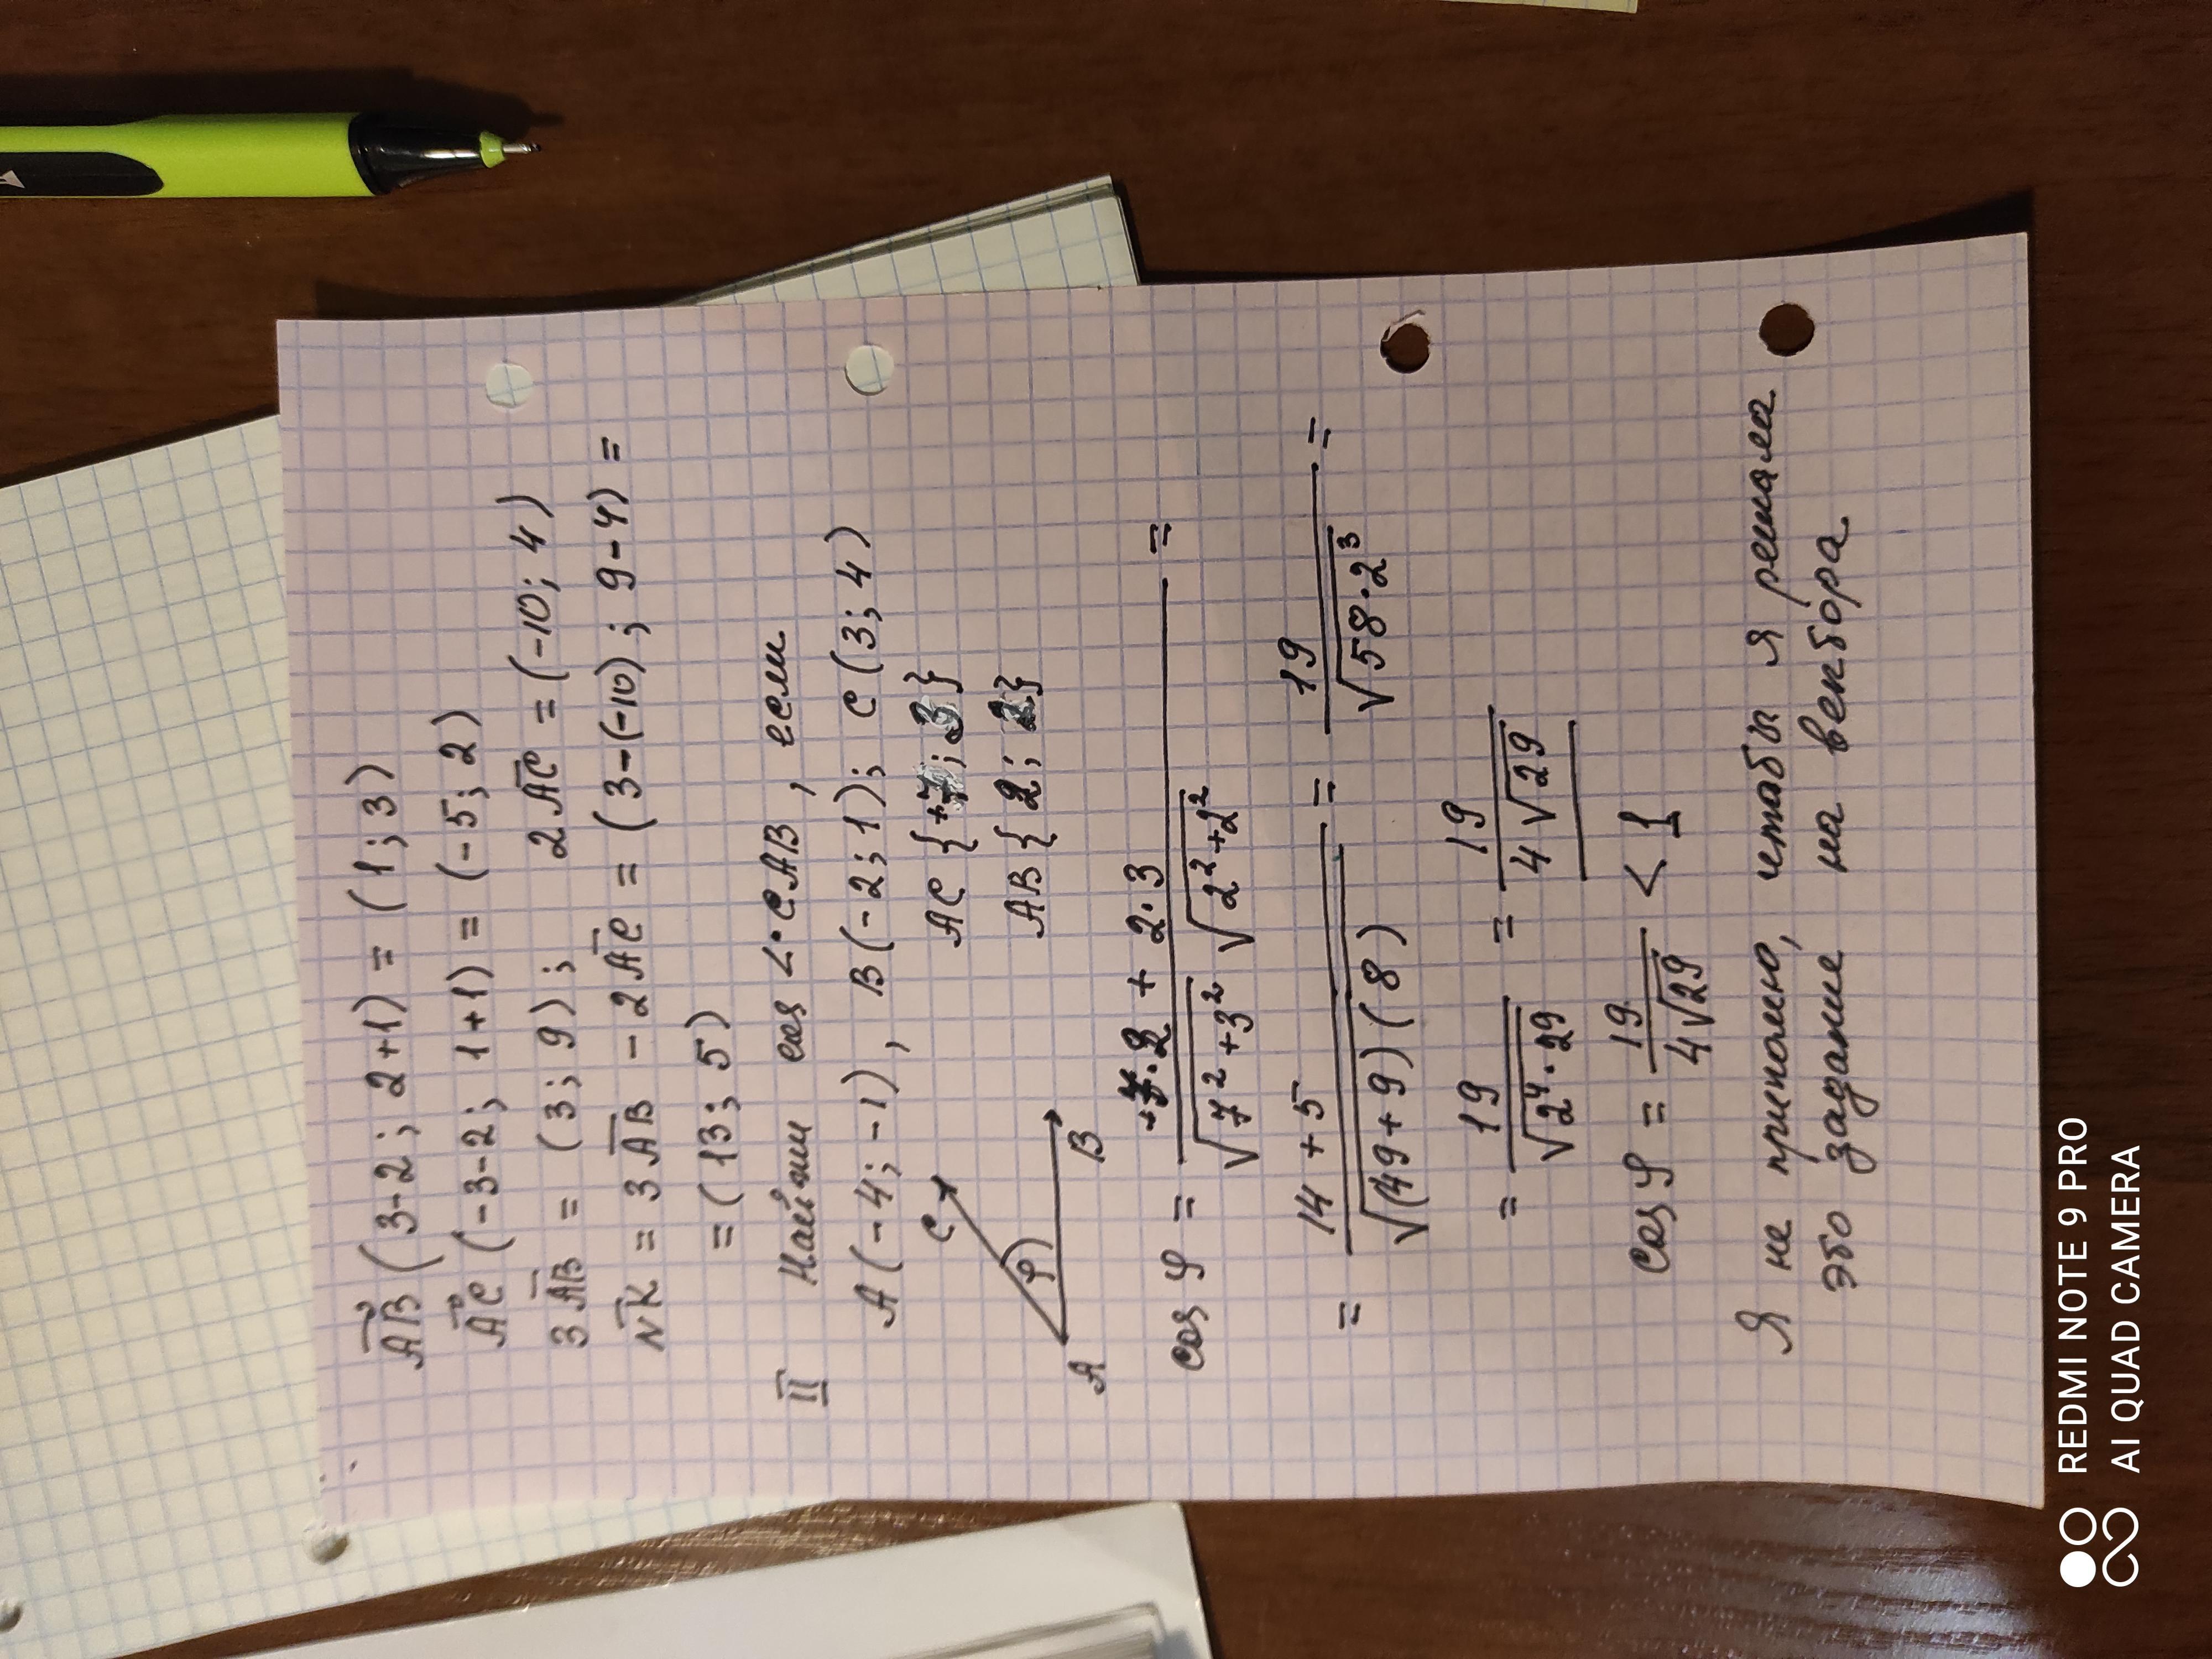 AB (3-2; 2+1) = (1; 3)
AC (-3-2; 1+1) = (-5; 2)
3AB = (3; 9); 2AC = (-10; 4)
NK = 3AB - 2AC = (3-(-10); 9-4) =
= (13; 5)
II Найти cos ∠ CAB, если
A(-4; -1), B(-2; 1); C(3; 4)
AC {+7; 3}
C
φ
A
B
AB {2; 2}
cos φ = (7·2 + 2·3) / (√(7²+3²) √(2²+2²)) =
= (14+5) / √((49+9)(8)) = 19 / √(58·2³) =
= 19 / √(2⁴·29) = 19 / (4√29)
cos φ = 19 / (4√29) < 1
Я не припомню, чтобы я решала
это задание на вектора
REDMI NOTE 9 PRO
AI QUAD CAMERA